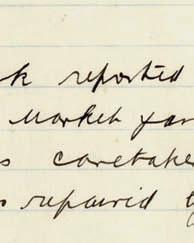 k reported
Market yar
s caretake
s repairid t